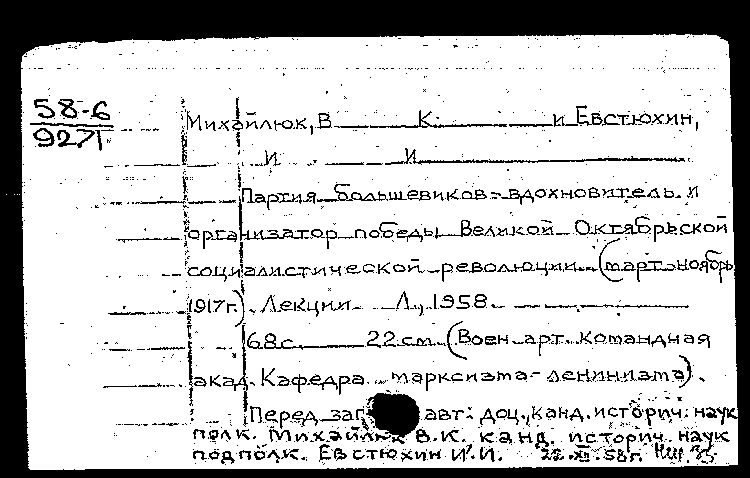 58-6
9271
Михайлюк, В К. и Евстюхин,
И И
Партия большевиков - вдохновитель и
организатор победы Великой Октябрьской
социалистической революции (март-ноябрь
1917г.). Лекции Л., 1958.
68 с. 22 см. (Воен. арт. командная
акад. Кафедра марксизма-ленинизма).
Перед заг авт: доц., канд. историч. наук
полк. Михайлюк В.К. канд. историч. наук
подполк. Евстюхин И.И. 22.XII.58г.